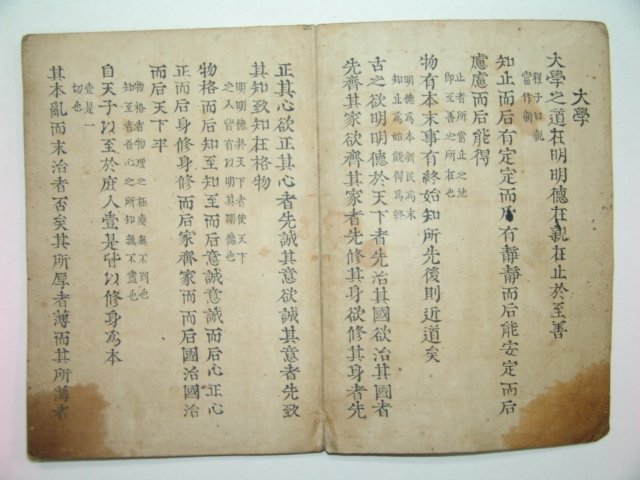 大學
大學之道在明明德在親在止於至善
程子曰親
當作新
知止而后有定定而后有靜靜而后能安定而后
慮慮而后能得
止者所當止之地
即至善之所在也
物有本末事有終始知所先後則近道矣
明德為本新民為末
知止為始能得為終
古之欲明明德於天下者先治其國欲治其國者
先齊其家欲齊其家者先修其身欲修其身者先
正其心欲正其心者先誠其意欲誠其意者先致
其知致知在格物
明明德於天下者使天下
之人皆有以明其明德也
物格而后知至知至而后意意誠而后心正心
正而后身修身修而后家齊家而而后國治國治
而后天下平
物格者物理之極處無不到也
知至者吾心之所知無不盡也
自天子以至於庶人壹是皆以修身為本
壹是一
切也
其本亂而末治者否矣其所厚者薄而其所薄者